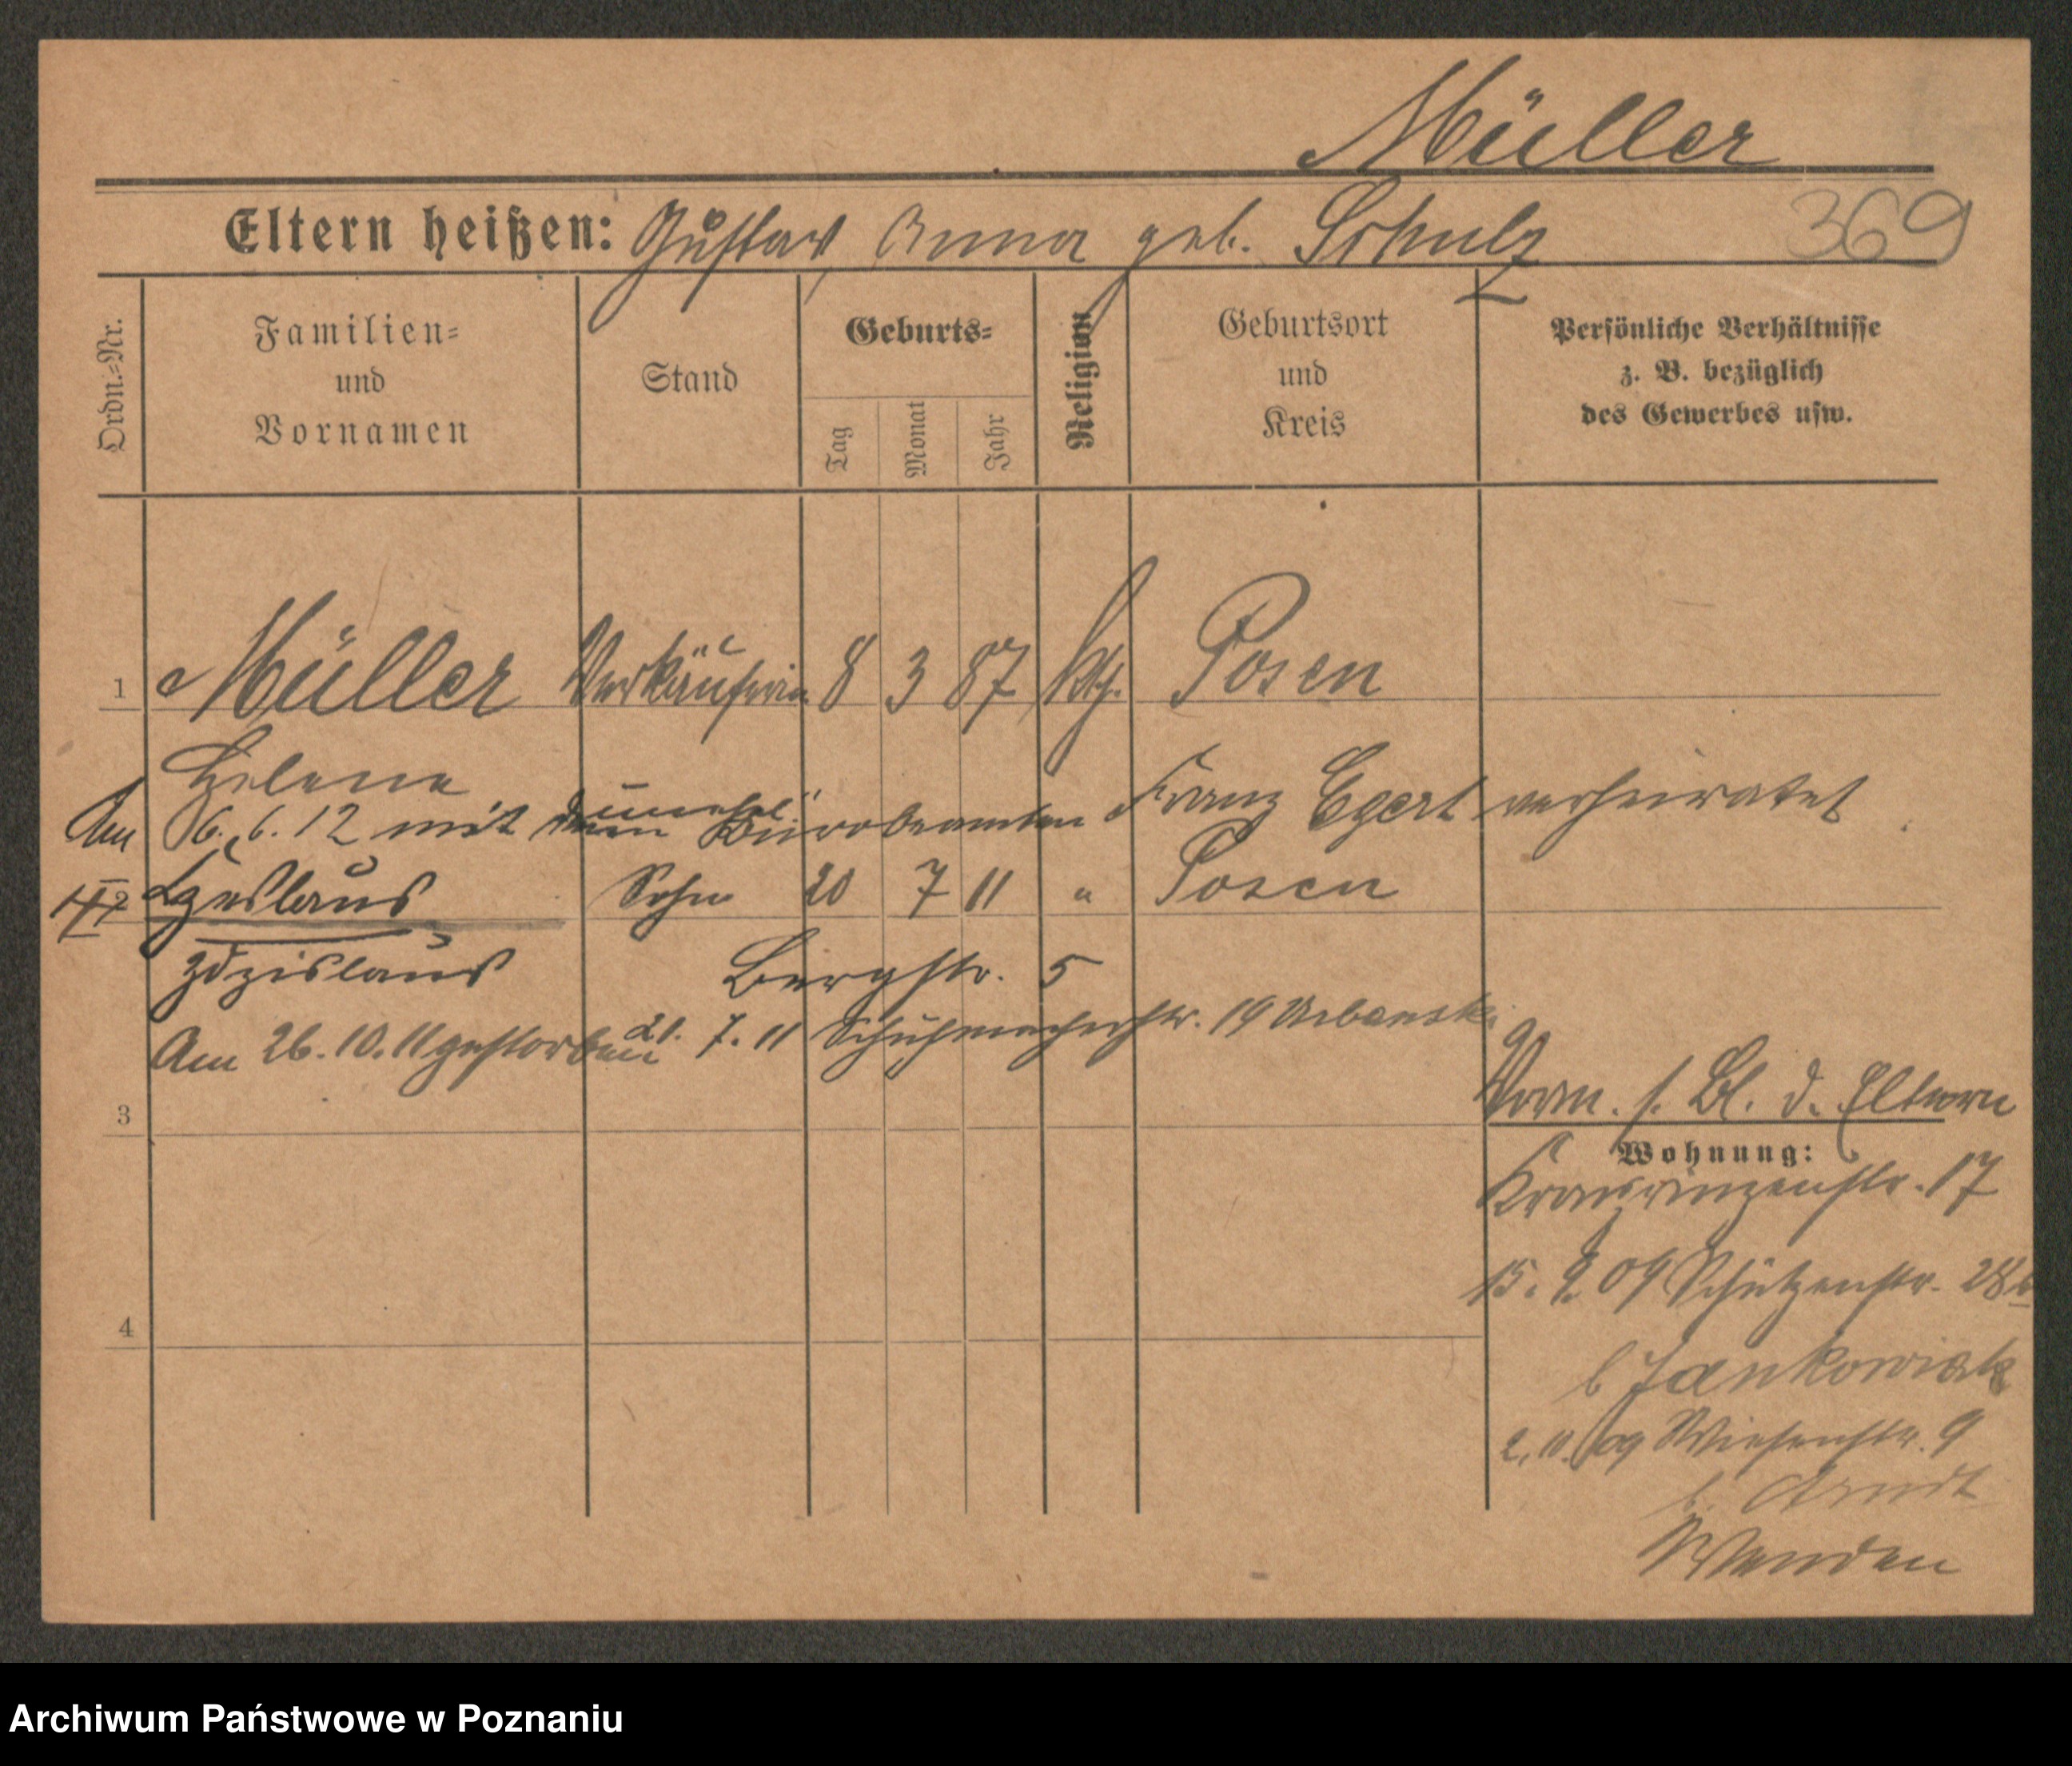 Müller
Eltern heißen: Gustav, Anna geb. Schulz
369
Ordn.=Nr. Familien= und Vornamen Stand Geburts= Tag Monat Jahr Religion Geburtsort und Kreis Persönliche Verhältnisse z. B. bezüglich des Gewerbes usw.
1 Müller Verkäuferin 8 3 87 kth. Posen
Helene
unehel.
Am 6. 6. 12 mit dem Bürobeamten Franz Egert verheiratet
2 Czeslaus Sohn 20 7 11 " Posen
Zdzislaus Bergstr. 5
Am 26.10.11 gestorben 21. 7. 11 Schuhmacherstr. 19 Urbanski
3
Vorm. s. Bl. d. Eltern
Wohnung:
Kronprinzenstr. 17
15. 9. 09 Schützenstr. 28b
b Jankowiak
4
2. 11. 09 Wiesenstr. 9
b. Arndt
Wenden
Archiwum Państwowe w Poznaniu